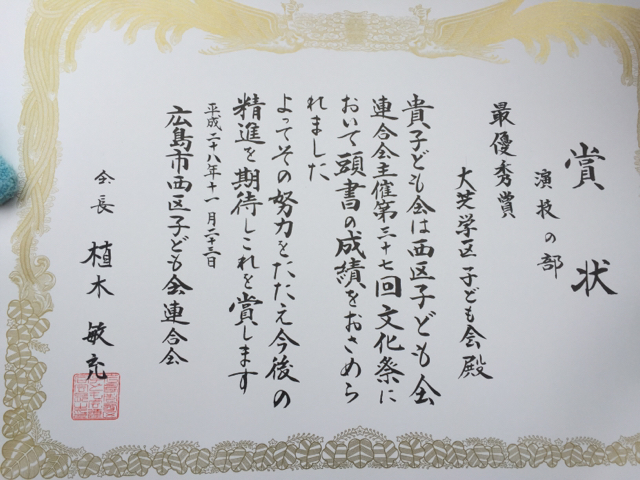 賞状
演技の部
最優秀賞
大芝学区子ども会殿
貴子ども会は西区子ども会
連合会主催第三十七回文化祭に
おいて頭書の成績をおさめら
れました
よってその努力をたたえ今後の
精進を期待しこれを賞します
平成二十八年十一月二十三日
広島市西区子ども会連合会
会長 植木敏充